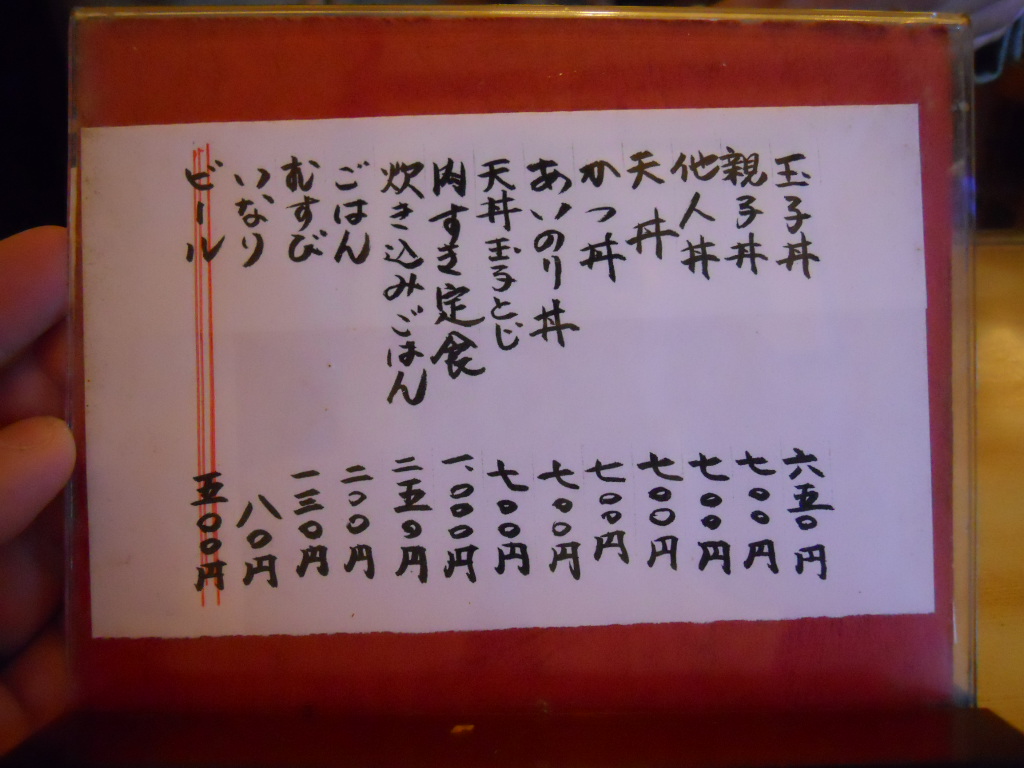 玉子丼 六五〇円
親子丼 七〇〇円
他人丼 七〇〇円
天丼 七〇〇円
かつ丼 七〇〇円
あいのり丼 七〇〇円
天丼玉子とじ 七〇〇円
肉すき定食 一、〇〇〇円
炊き込みごはん 二五〇円
ごはん 二〇〇円
むすび 一三〇円
いなり 八〇円
ビール 五〇〇円